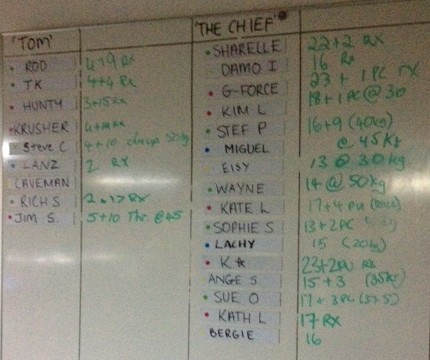 'TOM'
ROD 4+9 RX
TK 4+4 RX
HUNTY 3+15 RX
KRUSHER
Steve C 4+10
LANZ 2 RX
CAVEMAN
RICH S RX
JIM S. 5+10 Thr. @45
'THE CHIEF'
SHARELLE 22+2 RX
DAMO I 16 RX
G-FORCE 23 + 1 PC RX
KIM L 18+1 PC @ 30
STEF P 16+9 (40kg)
MIGUEL @ 45kg
EISY 13 @ 30kg
WAYNE 14 @ 50kg
KATE L 17+4 PU
SOPHIE S 13+2PC
LACHY 15 (20kg)
K☆ 23+2PU RX
ANGE S 15+3 (35kg)
SUE O 17+3PC (37.5)
KATH L 17 RX
BERGIE 16